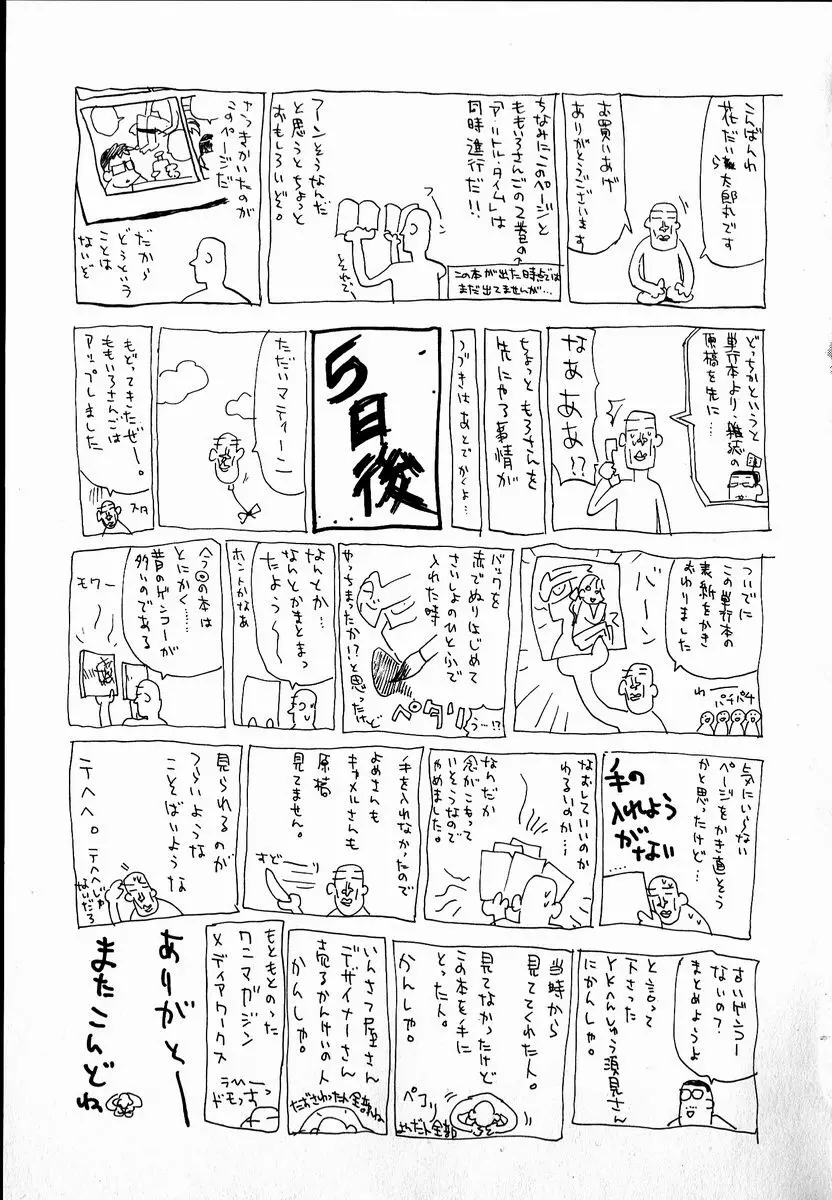 こんばんわ
花だい
太郎丸です
お買いあげ
ありがとうございます
ちなみにこのページと
ももいろさんごの2巻の
「アルトル・タイム」は
同時進行だ!!
この本が出た時点では
まだ出てませんが…
フーンそうなんだ
と思うとちょっと
おもしろいぞ。
フーン
それで
さっきかいたのが
このページだ
だから
どうという
ことは
ないぞ
どっちかというと
単行本より、雑誌の
原稿を先に…
なぁぁぁ!?
ちょっとももさんを
先にやる事情が
つづきはあとでかくよ…
5日後
ただいマティーン
もどってきたぜー。
ももいろさんごは
アップしました
スタ
ついでに
この単行本の
表紙をかき
おわりました
バーン
わー
パチパチ
バックを
赤でぬりはじめて
さいしょのひとふで
入れた時
ペタリ
う…!?
やっちまったか!?と思ったけど
なんとか…
なんとかまとまっ
たよう〜
ホントかなあ
今回の本は
とにかく……
昔のゲンコーが
多いのである
モワー
気にいらない
ページをかき直そう
かと思ったけど…
手の
入れよう
がない
…
なおしていいのか
わるいのか…
なんだか
念がこもって
いそうなので
やめました。
手を入れなかったので
よめさんも
キャメルさんも
原稿
見てません。
すどーり
見られるのが
つらいような
こそばいような
テヘヘ。
テヘヘじゃ
ないだろ
古いゲンコー
ないの?
まとめようよ
と言って
下さった
YKへんしゅう須見さん
にかんしゃ。
当時から
見ててくれた人。
見てなかったけど
この本を手に
とった人。
かんしゃ。
ペコリ
よんだ人全部
いんさつ屋さん
デザイナーさん
売るかんけいの人
かんしゃ。
たずさわった人全部ね
もともとのった
ワニマガジン
メディアワークス
ラヘーー
ドモっさっ
ありがとー
またこんどね